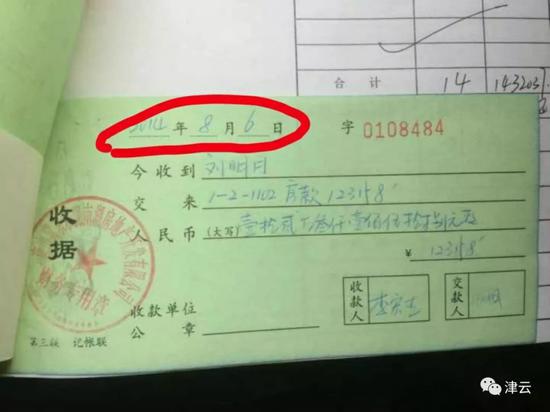 合计 14 143203
2014年8月6日 字 0108484
今收到 刘明月
交来 1-2-1102房款 123158
收据
人民币(大写) 壹拾贰万叁仟壹佰伍拾捌元正
¥ 123158
财务专用章
收款单位
公章
收款人 李宗
交款人
第三联 记帐联
津云